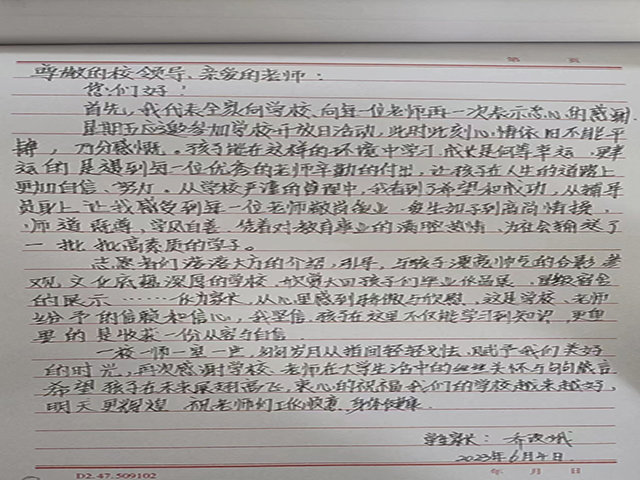 第 页
尊敬的校领导、亲爱的老师：
您们好！
首先，我代表全家向学校、向每一位老师再一次表示忠心的感谢
星期五应邀参加学校开放日活动，此时此刻心情依旧不能平
，万分感慨。孩子能在这样的环境中学习、成长是何等幸运，更幸
运的是遇到每一位优秀的老师辛勤的付出，让孩子在人生的道路上
更加自信、努力。从学校严谨的管理中，我看到了希望和成功，从辅导
员身上让我感受到每一位老师敬岗爱业、爱生如子的高尚情操，
师道 尊，学风自善，凭着对教育事业的满腔热情，为社会输送了
一批批高素质的学子。
志愿者们落落大方的介绍、引导，与孩子漂亮帅气的合影，参
观文化底蕴深厚的学校，欣赏大四孩子们毕业作品展，星级宿舍
的展示……作为家长，从心里感到骄傲与欣慰，这是学校、老师
给予的信赖和信心，我坚信，孩子在这里不仅能学习到知识，更重
要的是收获一份从容与自信。
一校一师一室一生，匆匆岁月从指间轻轻划法，赋予我们美好
的时光，再次感谢学校、老师在大学生活中的丝丝关怀与句句箴言
希望孩子在未来展翅高飞，衷心的祝福我们的学校越来越好，
明天更辉煌，祝老师们工作顺意，身体健康。
学生家长：乔 娥
2023年6月4日
D2.47.509102 年 月 日